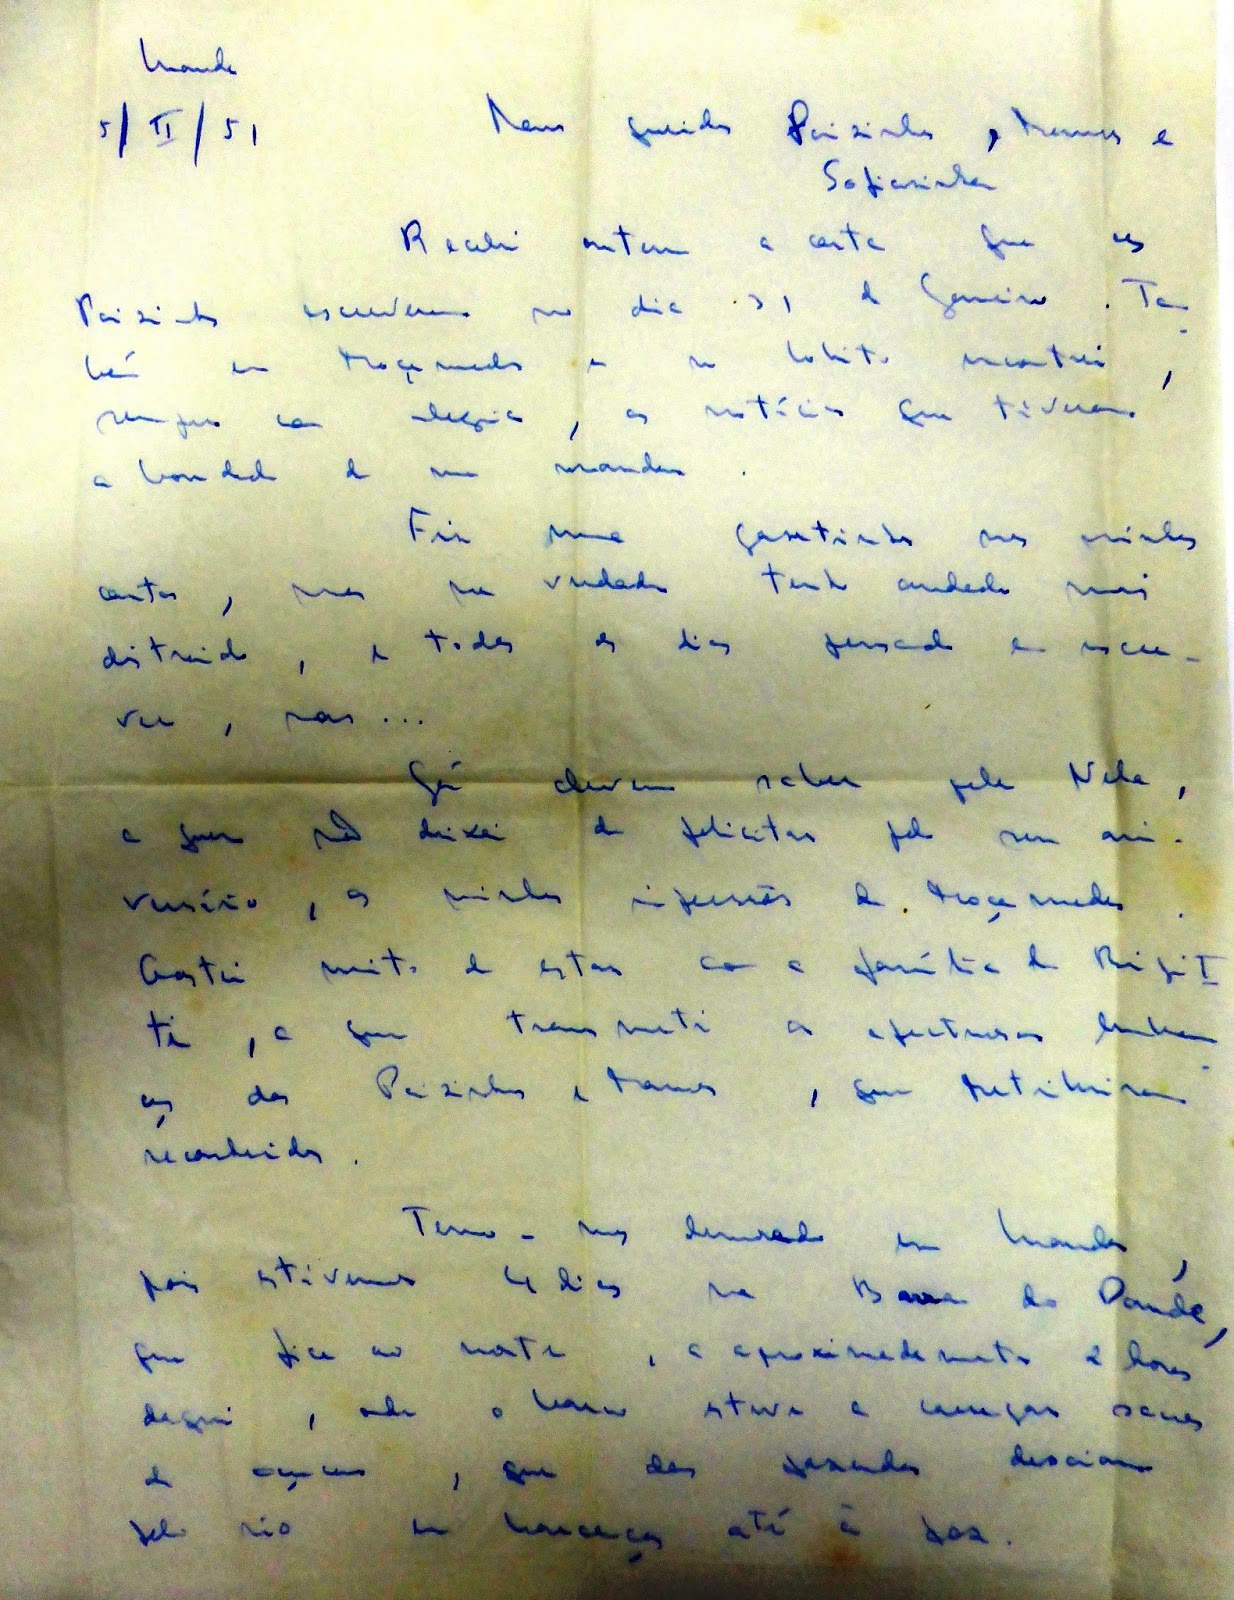 Luanda
5/II/51
Meus queridos Paizinhos, Mamãs e
Sofiazinha
Recebi ontem a carta que os
Paizinhos escreveram no dia 31 de Janeiro. Tam-
bém em Moçamedes e no Lobito encontrei,
sempre com alegria, as notícias que tiveram
a bondade de me mandar.
Fiz uma gazetinha nas minhas
cartas, mas na verdade tenho andado mais
distraido, e todos os dias pensando em escre-
ver, mas...
Já devem saber pela Nela,
a quem não deixei de felicitar pelo seu ani-
versário, as minhas impressões de Moçamedes.
Gostei muito de estar com a família do
, a quem transmiti as afectuosas lembran-
ças dos Paizinhos e Mamãs, que retribuiram
reconhecidos.
Temo-nos demorado em Luanda,
pois estivemos 4 dias na Barra do Dande,
que fica ao norte, a aproximadamente 2 horas
daqui, onde o barco esteve a carregar sacas
de açucar, que das fazendas desciam
pelo rio em barcaças até à foz.